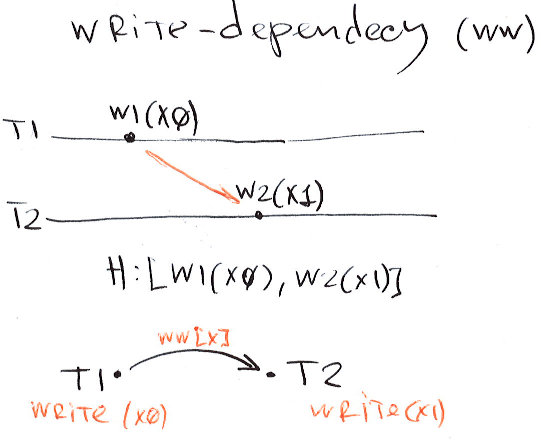 WRiTe-dependecy (ww)
W1(XØ)
T1
W2(X1)
T2
H:[W1(XØ), W2(X1)]
WW[X]
T1 T2
WRiTe (XØ) WRiTe(X1)